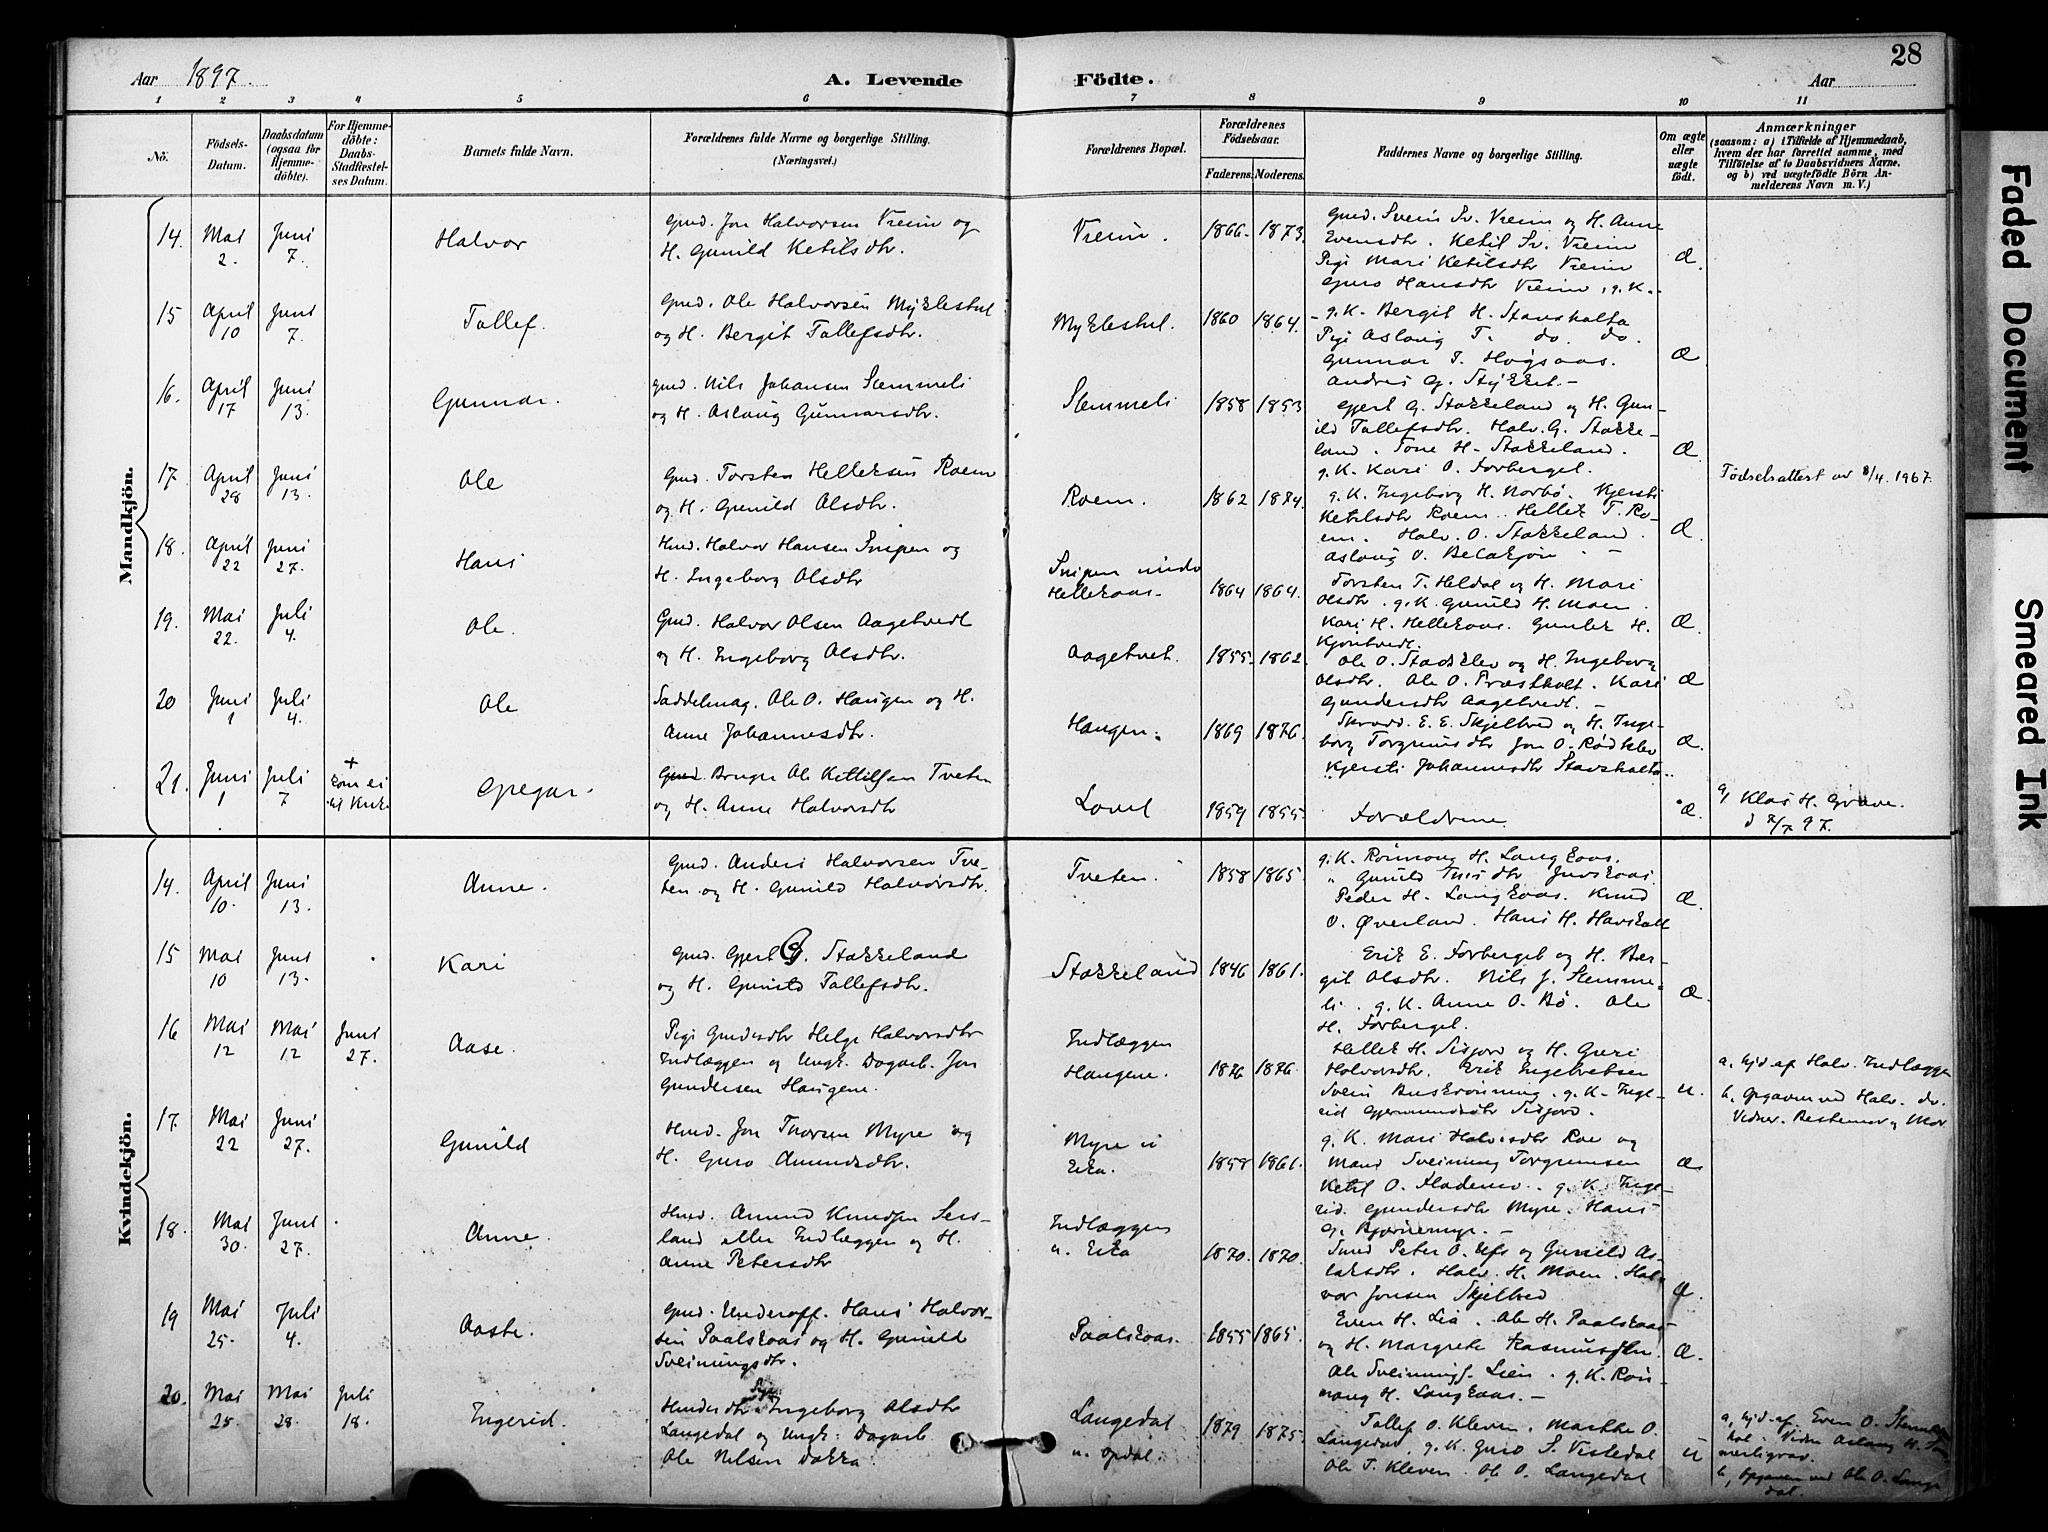 28
Aar 1897.
A. Levende Födte.
Aar
1 2 3 4 5 6 7 8 9 10 11
Nö.
Födsels-Datum.
Daabsdatum (ogsaa for Hjemme-döbte).
For Hjemme-döbte: Daabs-Stadfæstel-ses Datum.
Barnets fulde Navn.
Forældrenes fulde Navne og borgerlige Stilling.
(Næringsvei.)
Forældrenes Bopæl.
Forældrenes Födselsaar.
Faderens. Moderens.
Faddernes Navne og borgerlige Stilling.
Om ægte eller uægte födt.
Anmærkninger
(saasom: a) i Tilfælde af Hjemmedaab,
hvem der har forrettet samme, med
Tilföielse af to Daabsvidners Navne,
og b) ved uægtefödte Börn An-
melderens Navn m. V.)
Mandkjön.
14. Mai 2. Juni 7. Halvor
Gmd. Jon Halvorsen Vreim og
H. Gunild Ketilsdtr.
Vreim. 1866. 1873.
Gmd. Svein Sv. Vreim og H. Anne
Evensdtr. Ketil Sv. Vreim
Pige Mari Ketilsdtr Vreim
Guro Hansdtr Vreim, g. K.
Æ.
15 April 10 Juni 7. Tallef.
Gmd. Ole Halvorsen Myklestul
og H. Bergit Tallefsdtr.
Myklestul. 1860 1864.
g. K. Bergit H. Stavsholta
Pige Aslaug T. do. do.
Gunnar T. Høgsaas.
Andres G. Stykket.
Æ
16. April 17 Juni 13. Gunnar.
Gmd. Nils Johansen Stemmeli
og H. Aslaug Gunnarsdtr.
Stemmeli 1858 1853
Gjert G. Stokkeland og H. Gun-
ild Tallefsdtr. Halv. G. Stokke-
land. Tone H. Stokkeland.
g. K. Kari O. Forberget.
Æ.
17. April 28 Juni 13. Ole
Gmd. Torsten Helleksen Roem
og H. Gunild Olsdtr.
Roem. 1862 1884.
g. K. Ingeborg H. Norbø. Kjersti
Ketilsdtr Roem. Hellek T. Ro-
em. Halv. O. Stokkeland.
Aslaug O.
Æ.
Fødselsattest av 8/4. 1967.
18. April 22 Juni 27. Hans
Hmd. Halvor Hansen Snipen og
H. Ingeborg Olsdtr
Snipen under
Hellekaas. 1864 1864.
Torsten T. Heldal og H. Mari
Olsdtr. g. K. Gunild H. Moen.
Kari H. Hellekaas. Gunlek H.
Kjontvedt.
Æ.
19. Mai 22. Juli 4. Ole.
Gmd. Halvor Olsen Aagetvedt
og H. Ingeborg Olsdtr.
Aagetvet. 1855. 1862.
Ole O. Stadsklev og H. Ingeborg
Olsdtr. Ole O. Præstholt. Kari
Gundersdtr Aagetvedt.
Æ
20 Juni 1 Juli 4. Ole
Saddelmag. Ole O. Haugen og H.
Anne Johannesdtr.
Haugen. 1869 1876.
Skrædd. E. E. Skjelbred og H. Inge-
borg Torgrimsdtr Jon O. Rødklev
Kjersti Johannesdtr Stavsholta.
Æ.
21. Juni 1 Juli 7
+ kom ei til Kirke
Gregar.
Gmd. Bruger Ole Kittilsen Tveten
og H. Anne Halvorsdtr
Lovel 1859 1855.
Forældrene.
Æ.
a, Klas H. Grave.
d 7/7 97.
Kvindekjön.
14. April 10. Juni 13. Anne.
Gmd. Anders Halvorsen Tve-
ten og H. Gunild Halvorsdtr.
Tveten. 1858 1865.
g. K. Rønnaug H. Langkaas.
Peder H. Langkaas. Knud
O. Øverland. Hans H. Havskott
Æ.
15 Mai 10 Juni 13. Kari
Gmd. Gjert G. Stokkeland
og H. Gunild Tallefsdtr.
Stokkeland 1846 1861.
Erik E. Forberget og H. Ber-
git Olsdtr. Nils J. Stemme-
li. g. K. Anne O. Bø. Ole
H. Forberget.
Æ.
16 Mai 12 Mai 12 Juni 27. Aase.
Pige Gmdsdtr Helge Halvorsdtr
Indlæggen og Ungk. Dagarb. Jon
Gundersen Haugene.
Indlæggen
Haugene. 1876 1876.
Hellek H. Sisjord og H. Guri
Halvorsdtr. Erik Ingelvetsen
Svein Buskrønning. g. K. Inge-
rid Gjermundsdtr Sisjord.
u.
a, hjd. af Halv. Indlæggen
b, Opgaven ved Halv. do.
Vidner. Bestemor og Mor
17. Mai 22 Juni 27. Gunild
Hmd. Jon Thorsen Myre og
H. Guro Amundsdtr.
Myre u
Eika. 1858 1861.
g. K. Mari Halvorsdtr Roe og
Mand Sveinung Torgrimsen
Ketil O. Flademo. g. K. Inge-
rid. Gundersdtr Myre. Hans
G. Bjørnemyr.
Æ
18. Mai 30. Juni 27. Anne.
Hmd. Amund Knudsen Sels-
land eller Indlæggen og H.
Anne Petersdtr
Indlæggen
u. Eika 1870. 1870.
Smed Peter O. Eifs og Gunild As-
laksdtr. Halv. H. Moen. Hal-
vor Jonsen Skjelbred
Æ.
19 Mai 25. Juli 4. Aaste.
Gmd. Underoff. Hans Halvor-
sen Paalskaas og H. Gunild
Sveinungsdtr.
Paalskaas. 1855 1865.
Even H. Lia. Ole H. Paalskaas
og H. Margrethe Rasmusdtr.
Ole Sveinungs. Lien. g. K. Røn-
naug H. Langkaas.
Æ.
20. Mai 25. Mai 28. Juli 18. Ingerid.
Hmdsdtr. Pige Ingeborg Olsdtr
Langedal og Ungk. Dagarb.
Ole Nilsen Dokka.
Langedal
u. Opdal. 1879 1875.
Tallef O. Kleven. Marthe O.
Langedal, g. K. Guro S. Vistedal
Ole T. Kleven. Ole O. Langedal
u
a, hjd. af Even O.
Vidner Aslaug H.
b, Opgaven ved Ole O. Lange-
dal.
Faded Document
Smeared Ink